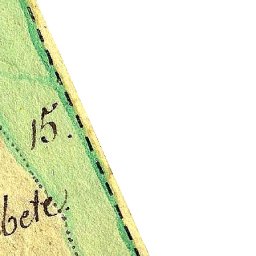 15.
bete